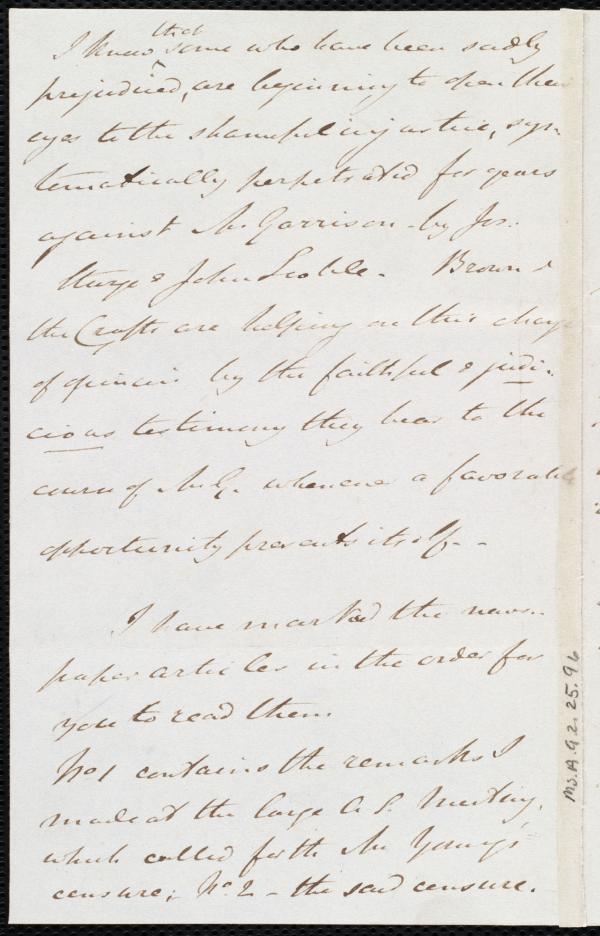 that
I know some who have been sadly
prejudiced, are beginning to open their
eyes to the shameful injustice, sys-
tematically perpetrated for years
against Mr Garrison - by Jos.
Sturge & John Scoble. Brown &
the Crafts are helping on this change
of opinion by the faithful & judi-
cious testimony they bear to the
course of Mr G. whenever a favorable
opportunity presents itself. -
I have marked the news-
paper articles in the order for
you to read them.
No 1 contains the remarks I
made at the large A S. Meeting,
which called forth Mr Young's
censure; No. 2 - the said censure.
MS.A.9.2.25.96